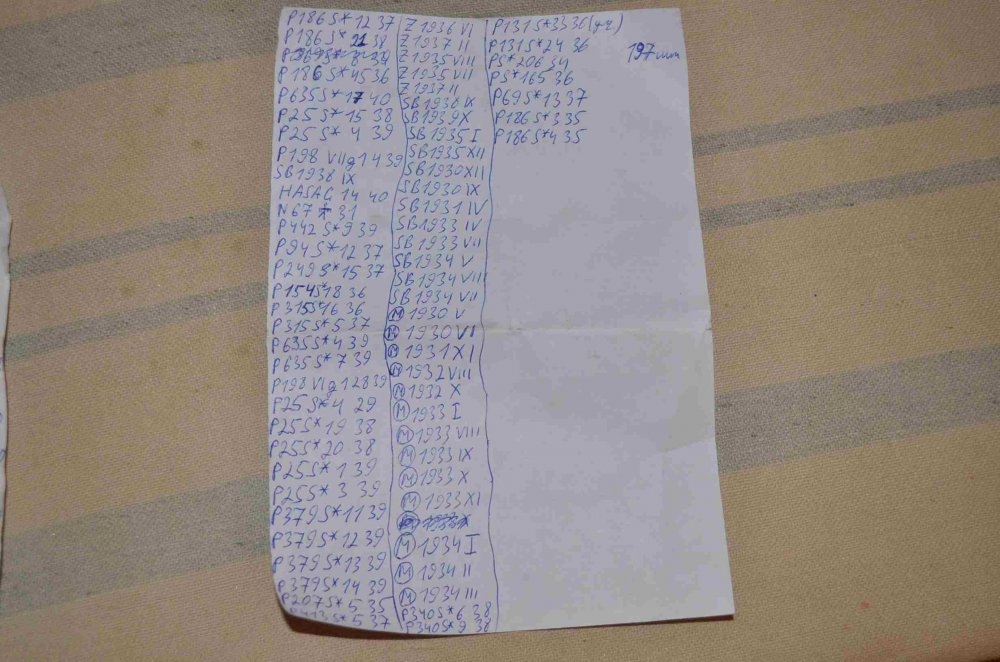 P186 S*12 37
P186 S* 21 38
P186 S* 45 36
P635 S* 17 40
P25 S* 15 38
P25 S* 4 39
P198 VIIg 14 39
SB 1938 IX
HASAG 14 40
N67 * 31
P442 S* 9 39
P94 S* 12 37
P249 S* 15 37
P154 S* 18 36
P315 S* 16 36
P315 S* 5 37
P635 S* 4 39
P635 S* 7 39
P198 VIg 128 39
P25 S* 4 29
P25 S* 19 38
P25 S* 20 38
P25 S* 1 39
P25 S* 3 39
P379 S* 11 39
P379 S* 12 39
P379 S* 13 39
P379 S* 14 39
P207 S* 5 35
S* 5 37
Z 1936 VI
Z 1937 II
Z 1935 VIII
Z 1935 VII
Z 1937 II
SB 1930 IX
SB 1939 X
SB 1935 I
SB 1935 XII
SB 1930 XII
SB 1930 IX
SB 1931 IV
SB 1933 IV
SB 1933 VII
SB 1934 V
SB 1934 VIII
SB 1934 VII
M 1930 V
M 1930 VI
M 1931 XI
M 1932 VIII
M 1932 X
M 1933 I
M 1933 VIII
M 1933 IX
M 1933 X
M 1933 XI
M 1934 I
M 1934 II
M 1934 III
P340 S* 6 38
P340 S* 9 38
P131 S* 33 36
P131 S* 24 36
PS* 206 34
PS* 165 36
P69 S* 13 37
P186 S* 3 35
P186 S* 4 35
197 шт